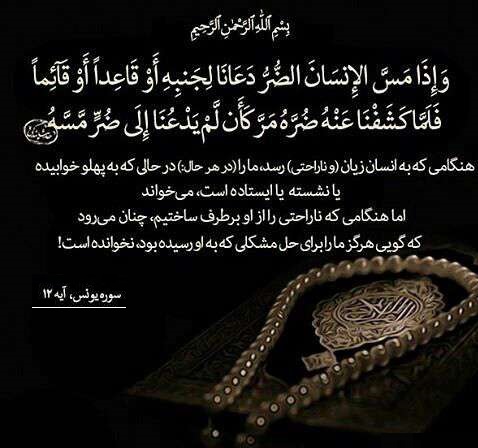 بِسْمِ ٱللَّٰهِ ٱلرَّحْمَٰنِ ٱلرَّحِيمِ
وَإِذَا مَسَّ الإِنسَانَ الضُّرُّ دَعَانَا لِجَنبِهِ أَوْ قَاعِداً أَوْ قَآئِماً
فَلَمَّا كَشَفْنَا عَنْهُ ضُرَّهُ مَرَّ كَأَن لَّمْ يَدْعُنَا إِلَى ضُرٍّ مَّسَّهُ
هنگامی که به انسان زیان (و ناراحتی) رسد، ما را (در هر حال:) در حالی که به پهلو خوابیده
یا نشسته یا ایستاده است، می‌خواند
اما هنگامی که ناراحتی را از او برطرف ساختیم، چنان می‌رود
که گویی هرگز ما را برای حل مشکلی که به او رسیده بود، نخوانده است!
سوره یونس، آیه ۱۲